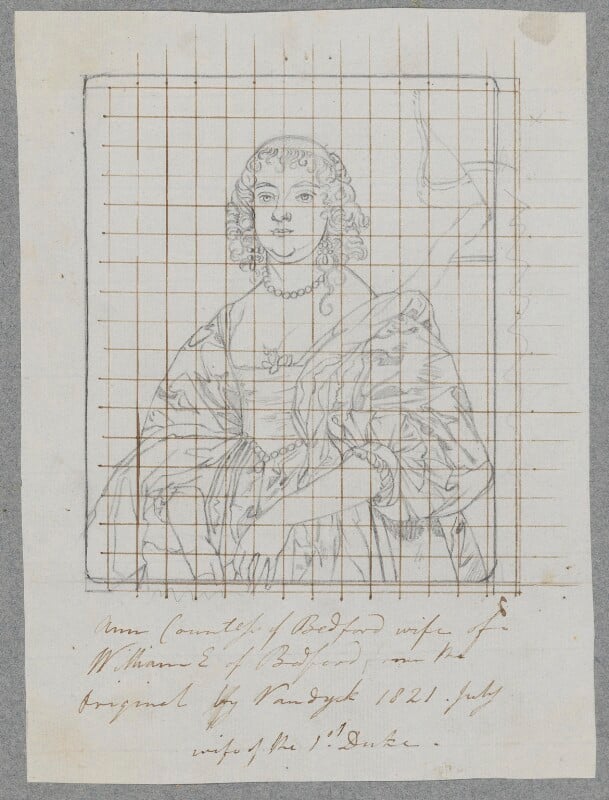 Ann Countess of Bedford wife of
William E of Bedford, the
Original by Vandyck 1821. July
wife of the 1st Duke.